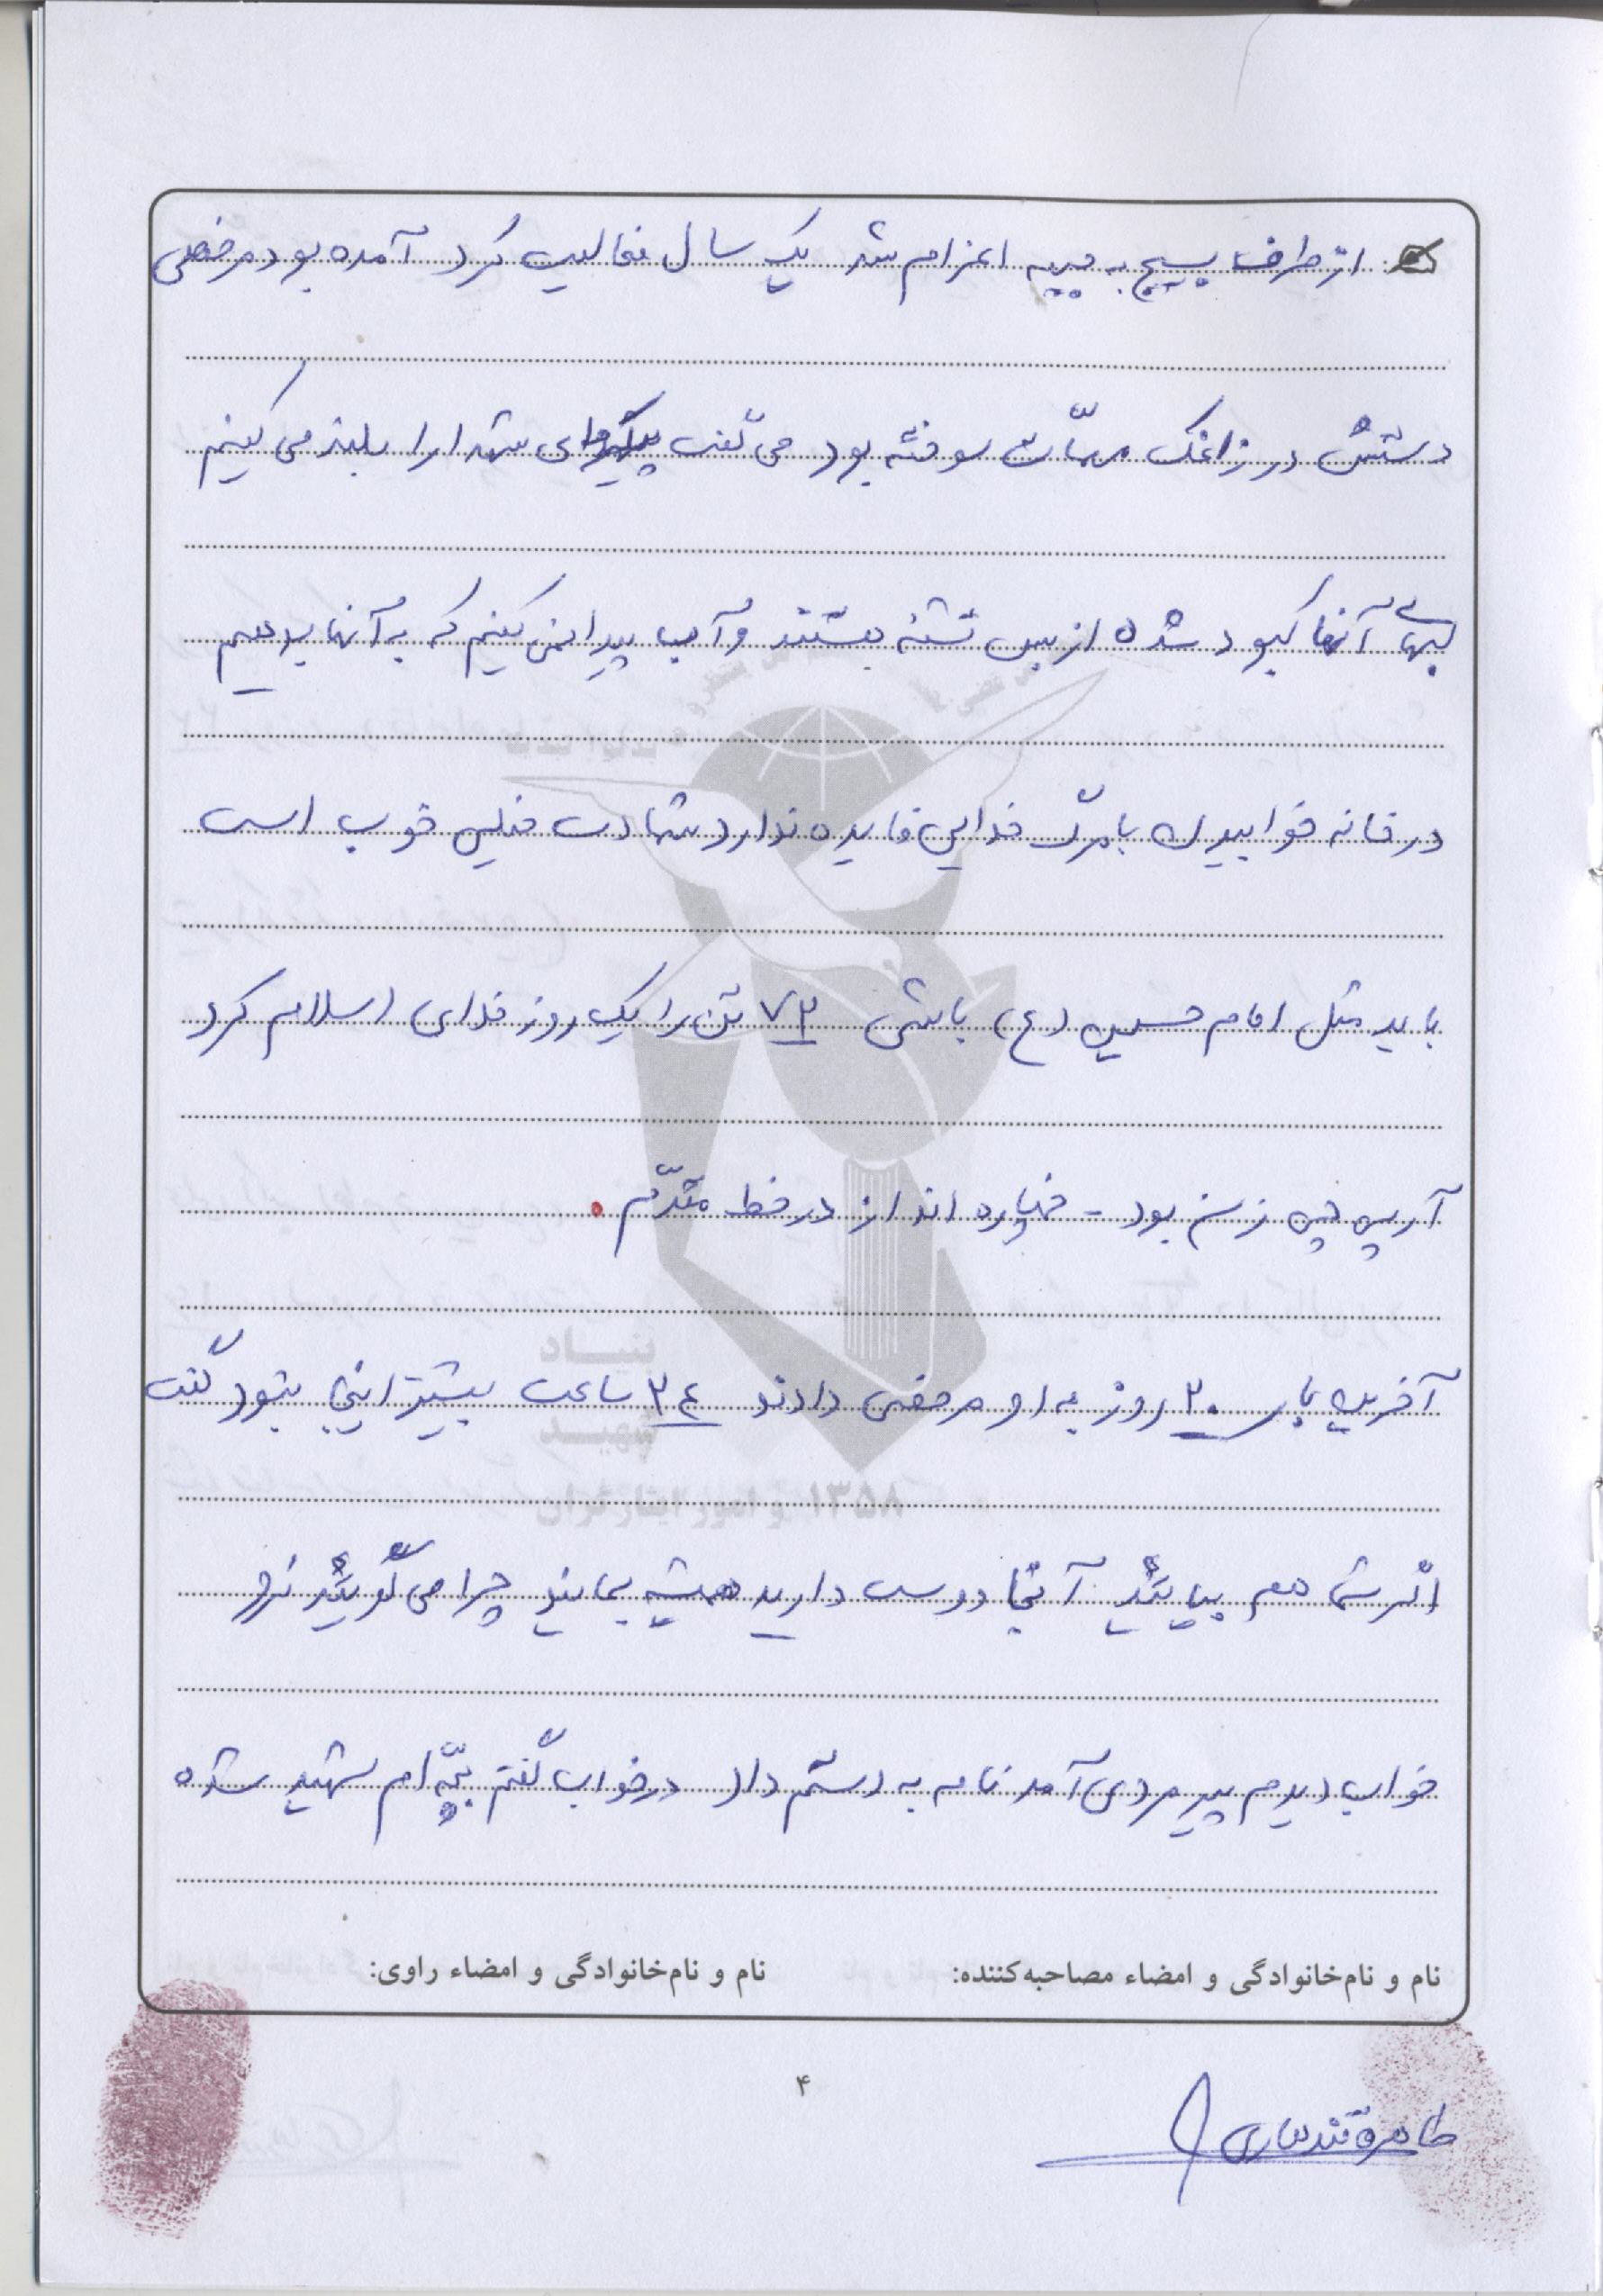 از طرف بسیج به جبهه اعزام شد یک سال فعالیت کرد آمده بود مرخصی
دستش در زاغک مهمّات سوخته بود می گفت پیکرهای شهدا را بلند می کنیم
لبهای آنها کبود شده از بس تشنه هستند و آب پیدا نمی کنیم که به آنها بدهیم
در خانه خوابیدن با مرگ خدایی فایده ندارد شهادت خیلی خوب است
باید مثل امام حسین (ع) باشی ۷۲ تن را یک روز فدای اسلام کرد
آرپی جی زن بود - خمپاره انداز در خط مقدّم .
آخرین بار ۲۰ روز به او مرخصی دادند ۲۴ ساعت بیشتر اینجا نبود گفت
اگر شما هم بیائید آنجا دوست دارید همیشه بمانید چرا می گوئید نرو
خواب دیدم پیرمردی آمد نامه به دستم داد در خواب گفتم بچّه ام شهید شده
نام و نام‌خانوادگی و امضاء مصاحبه‌کننده: نام و نام‌خانوادگی و امضاء راوی:
۴
طاهره قندهاری
بنیاد
شهید
و امور ایثارگران ۱۳۵۸